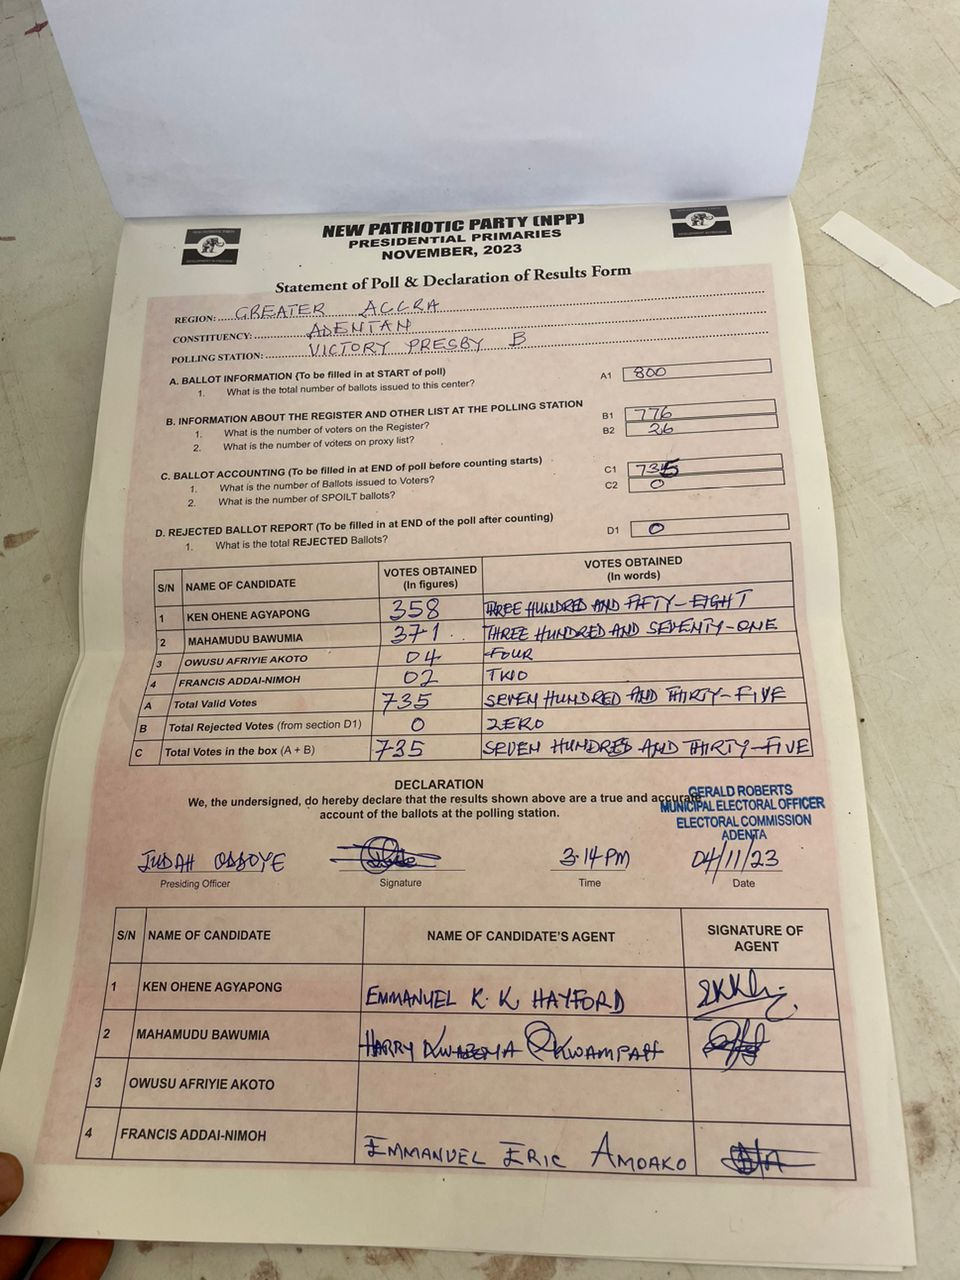 NEW PATRIOTIC PARTY (NPP)
PRESIDENTIAL PRIMARIES
NOVEMBER, 2023
Statement of Poll & Declaration of Results Form
REGION: GREATER ACCRA
CONSTITUENCY: ADENTAN
POLLING STATION: VICTORY PRESBY B
A. BALLOT INFORMATION (To be filled in at START of poll)
1. What is the total number of ballots issued to this center? A1 800
B. INFORMATION ABOUT THE REGISTER AND OTHER LIST AT THE POLLING STATION
1. What is the number of voters on the Register? B1 776
2. What is the number of voters on proxy list? B2 26
C. BALLOT ACCOUNTING (To be filled in at END of poll before counting starts)
1. What is the number of Ballots issued to Voters? C1 735
2. What is the number of SPOILT ballots? C2 0
D. REJECTED BALLOT REPORT (To be filled in at END of the poll after counting)
1. What is the total REJECTED Ballots? D1 0
S/N NAME OF CANDIDATE VOTES OBTAINED (In figures) VOTES OBTAINED (In words)
1 KEN OHENE AGYAPONG 358 THREE HUNDRED AND FIFTY-EIGHT
2 MAHAMUDU BAWUMIA 371 THREE HUNDRED AND SEVENTY-ONE
3 OWUSU AFRIYIE AKOTO 04 FOUR
4 FRANCIS ADDAI-NIMOH 02 TWO
A Total Valid Votes 735 SEVEN HUNDRED AND THIRTY-FIVE
B Total Rejected Votes (from section D1) 0 ZERO
C Total Votes in the box (A + B) 735 SEVEN HUNDRED AND THIRTY-FIVE
DECLARATION
We, the undersigned, do hereby declare that the results shown above are a true and accurate
account of the ballots at the polling station.
GERALD ROBERTS
MUNICIPAL ELECTORAL OFFICER
ELECTORAL COMMISSION
ADENTA
JUDAH 3.14PM 04/11/23
Presiding Officer Signature Time Date
S/N NAME OF CANDIDATE NAME OF CANDIDATE'S AGENT SIGNATURE OF AGENT
1 KEN OHENE AGYAPONG EMMANUEL K. K HAYFORD
2 MAHAMUDU BAWUMIA HARRY
3 OWUSU AFRIYIE AKOTO
4 FRANCIS ADDAI-NIMOH EMMANUEL ERIC AMOAKO